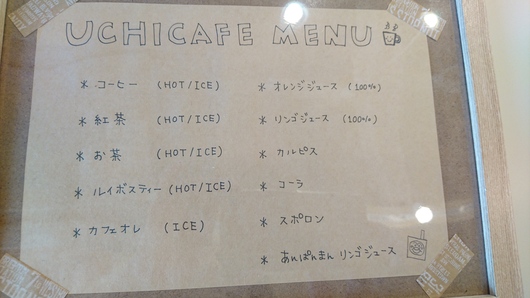 UCHICAFE MENU
* コーヒー (HOT/ICE)
* 紅茶 (HOT/ICE)
* お茶 (HOT/ICE)
* ルイボスティー (HOT/ICE)
* カフェオレ (ICE)
* オレンジジュース (100%)
* リンゴジュース (100%)
* カルピス
* コーラ
* スポロン
* あんぱんまん リンゴジュース